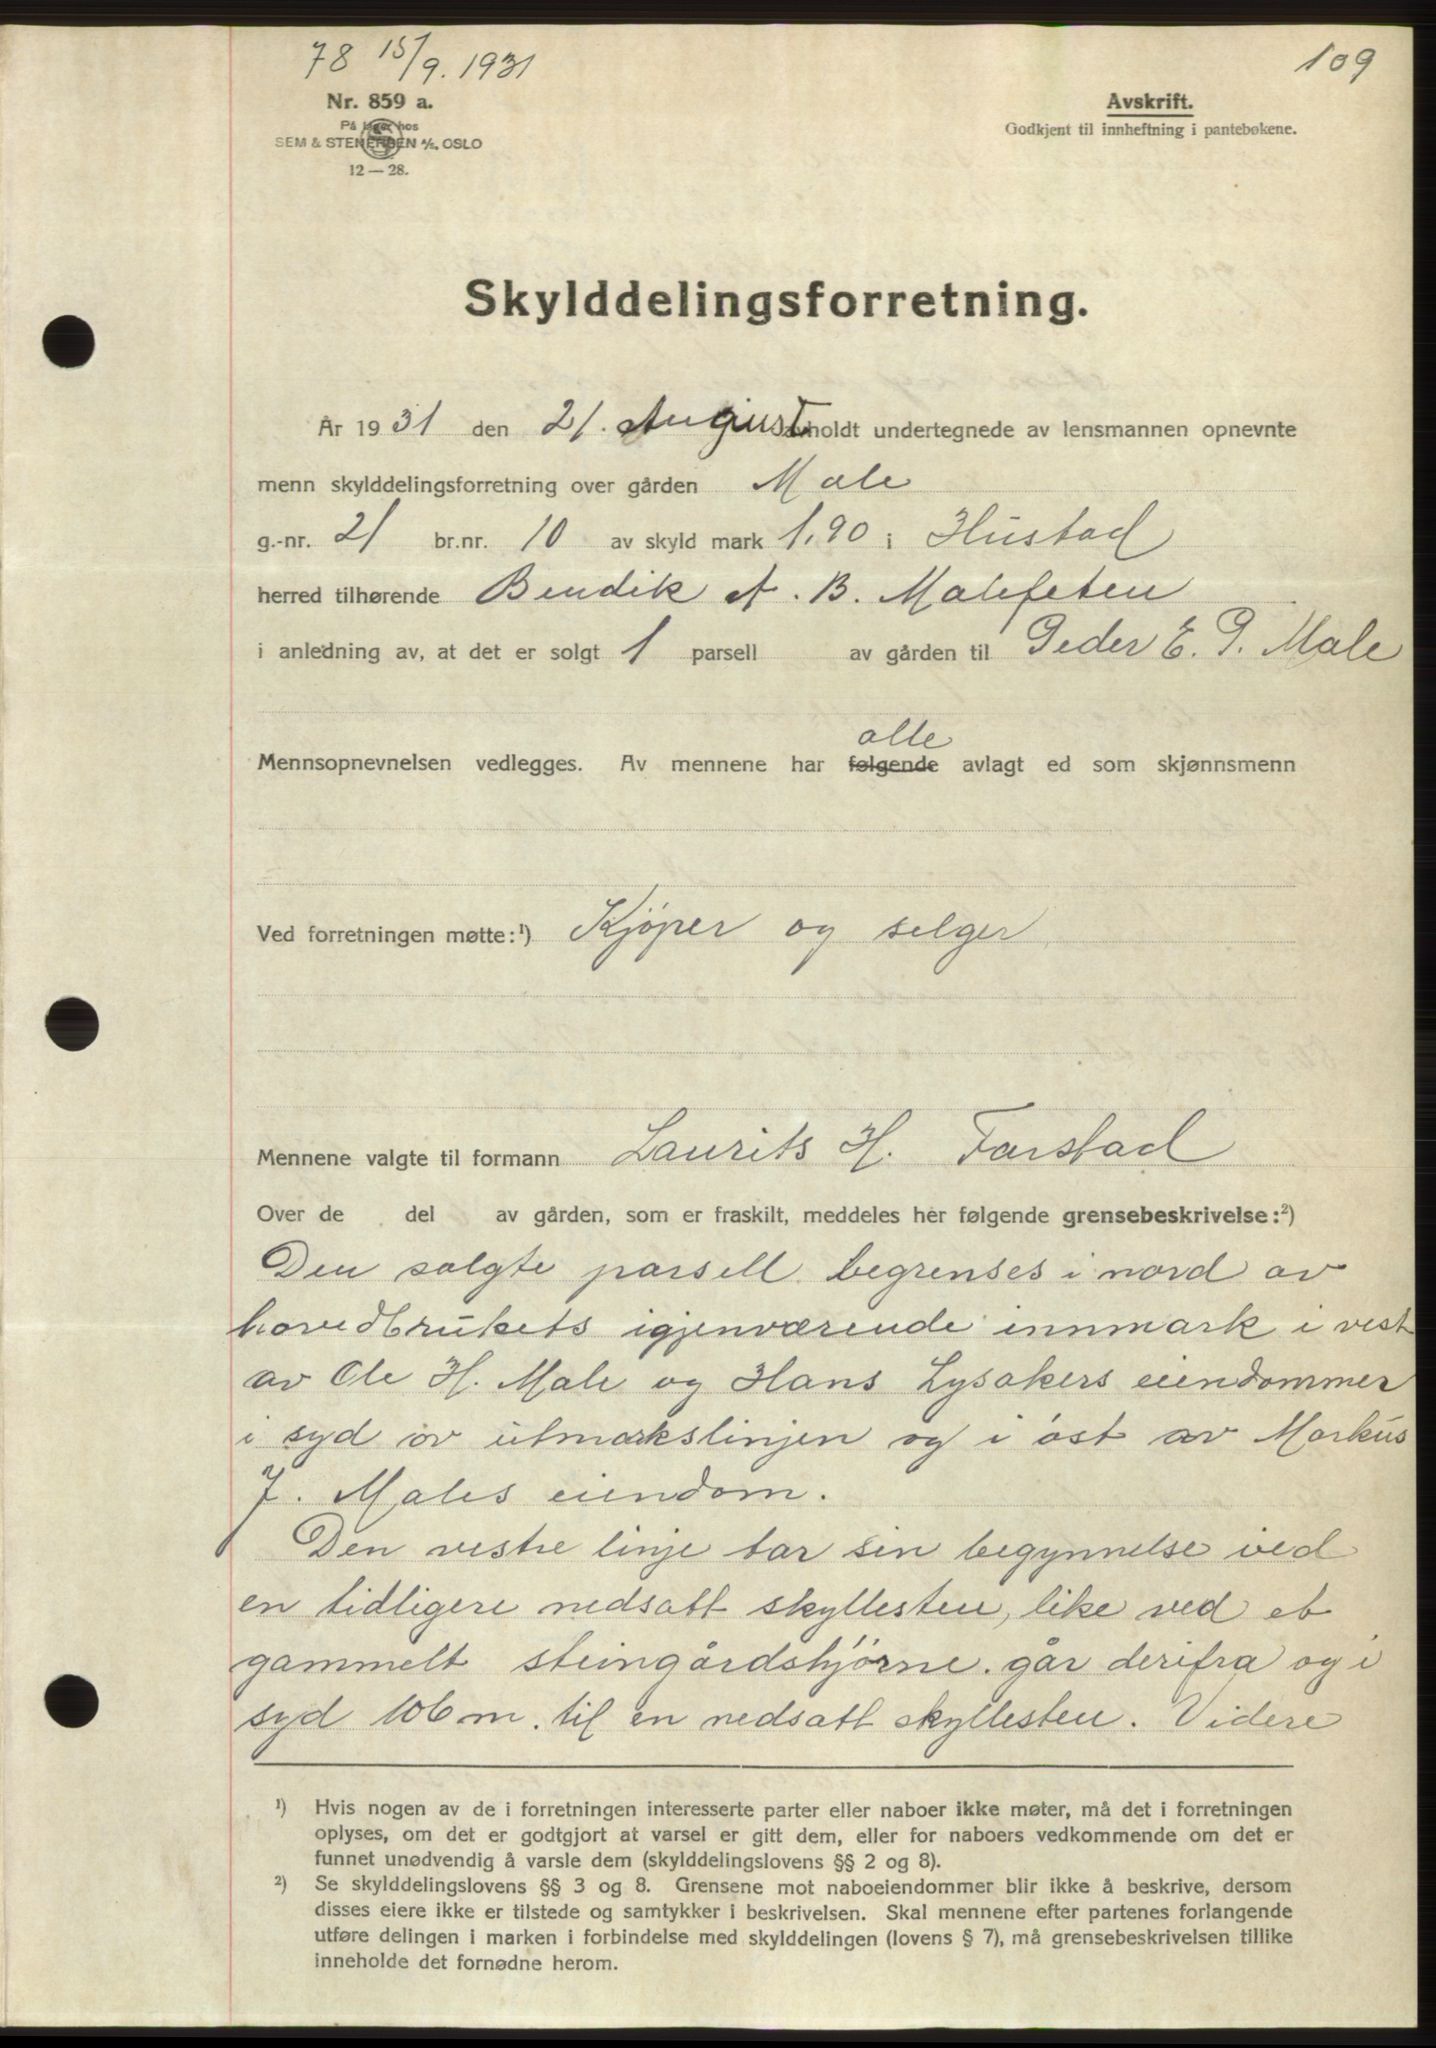 78 15/9. 1931
109
Nr. 859 a.
På lager hos
SEM & STENERSEN A/S, OSLO
12 — 28.
Avskrift.
Godkjent til innheftning i pantebøkene.
Skylddelingsforretning.
År 1931 den 21. August avholdt undertegnede av lensmannen opnevnte
menn skylddelingsforretning over gården Male
g.-nr. 21 br.nr. 10 av skyld mark 1,90 i Hustad
herred tilhørende Bendik A. B. Malefeten
i anledning av, at det er solgt 1 parsell av gården til Peder E. P. Male
alle
Mennsopnevnelsen vedlegges. Av mennene har følgende avlagt ed som skjønnsmenn
Ved forretningen møtte:¹) Kjøper og selger
Mennene valgte til formann Laurits H. Farstad
Over de del av gården, som er fraskilt, meddeles her følgende grensebeskrivelse:²)
Den solgte parsell begrenses i nord av
hovedbrukets igjenværende innmark i vest
av Ole H. Male og Hans Lysakers eiendommer
i syd av utmarkslinjen og i øst av Markus
J. Males eiendom.
Den vestre linje tar sin begynnelse ved
en tidligere nedsatt skyllesten, like ved et
gammelt steingårdshjørne. går derifra og i
syd 106 m. til en nedsatt skyllesten. Videre
¹) Hvis nogen av de i forretningen interesserte parter eller naboer ikke møter, må det i forretningen
oplyses, om det er godtgjort at varsel er gitt dem, eller for naboers vedkommende om det er
funnet unødvendig å varsle dem (skylddelingslovens §§ 2 og 8).
²) Se skylddelingslovens §§ 3 og 8. Grensene mot naboeiendommer blir ikke å beskrive, dersom
disses eiere ikke er tilstede og samtykker i beskrivelsen. Skal mennene efter partenes forlangende
utføre delingen i marken i forbindelse med skylddelingen (lovens § 7), må grensebeskrivelsen tillike
inneholde det fornødne herom.